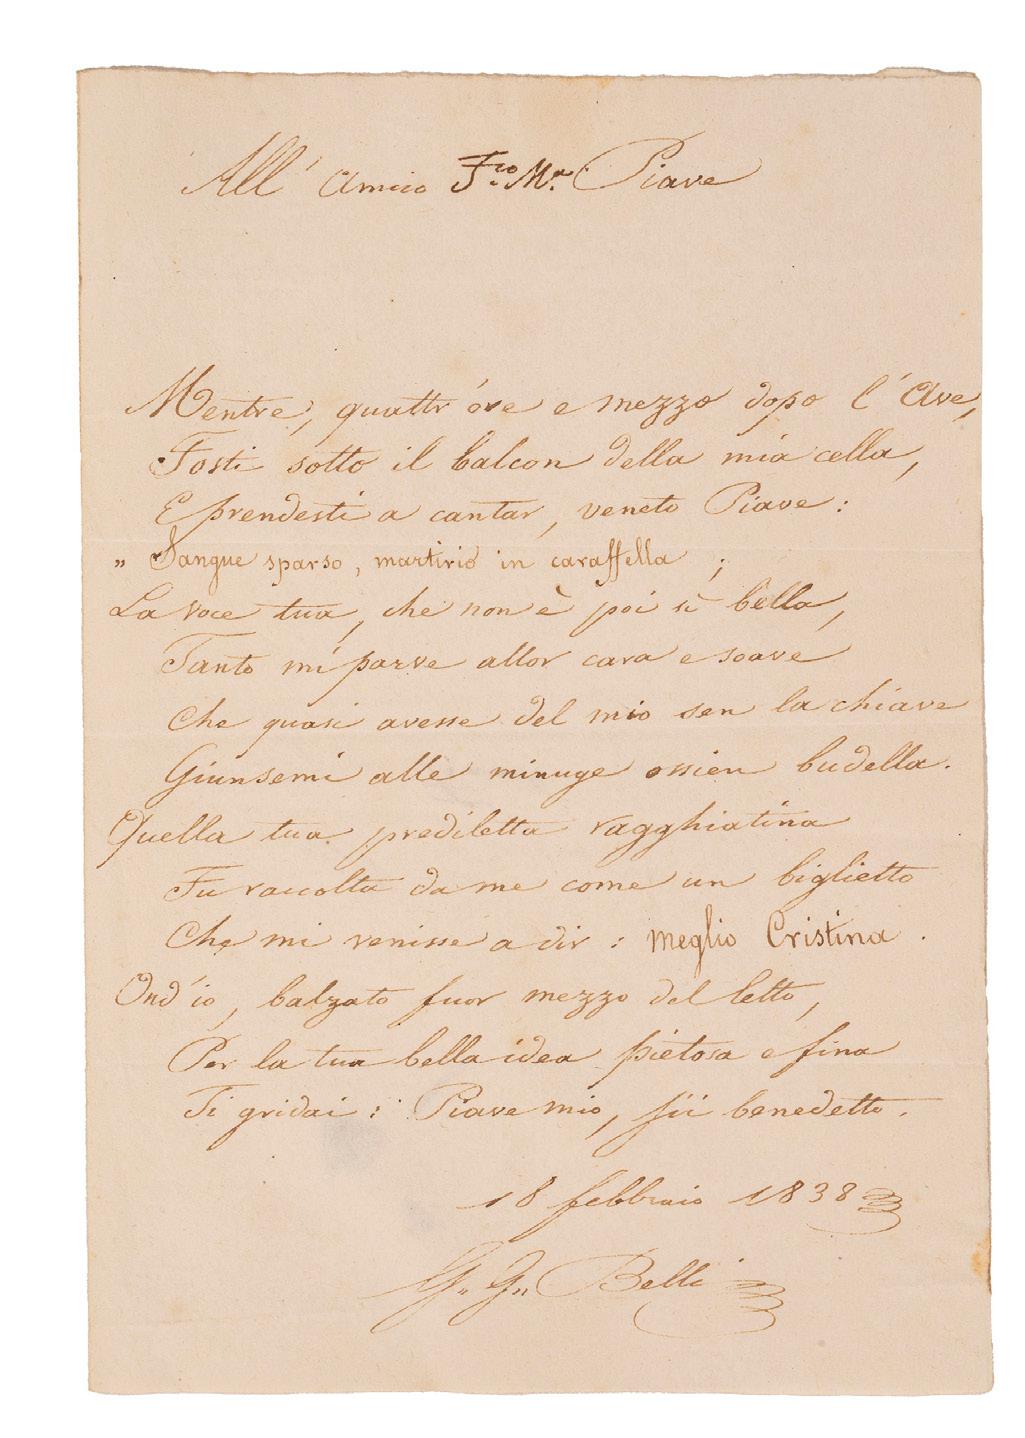 All' Amico F.co M.a Piave
Mentre, quattr'ore e mezzo dopo l'Ave,
Fosti sotto il balcon della mia cella,
E prendesti a cantar, veneto Piave:
„ Sangue sparso, martirio in caraffella ;
La voce tua, che non è poi sì bella,
Tanto mi parve allor cara e soave
Che quasi avesse del mio sen la chiave
Giunsemi alle minuge ossien budella.
Quella tua prediletta ragghiatina
Fu raccolta da me come un biglietto
Che mi venisse a dir : meglio Cristina .
Ond'io, balzato fuor mezzo del letto,
Per la tua bella idea pietosa e fina
Ti gridai : Piave mio, sii benedetto.
18 febbraio 1838
G. G. Belli